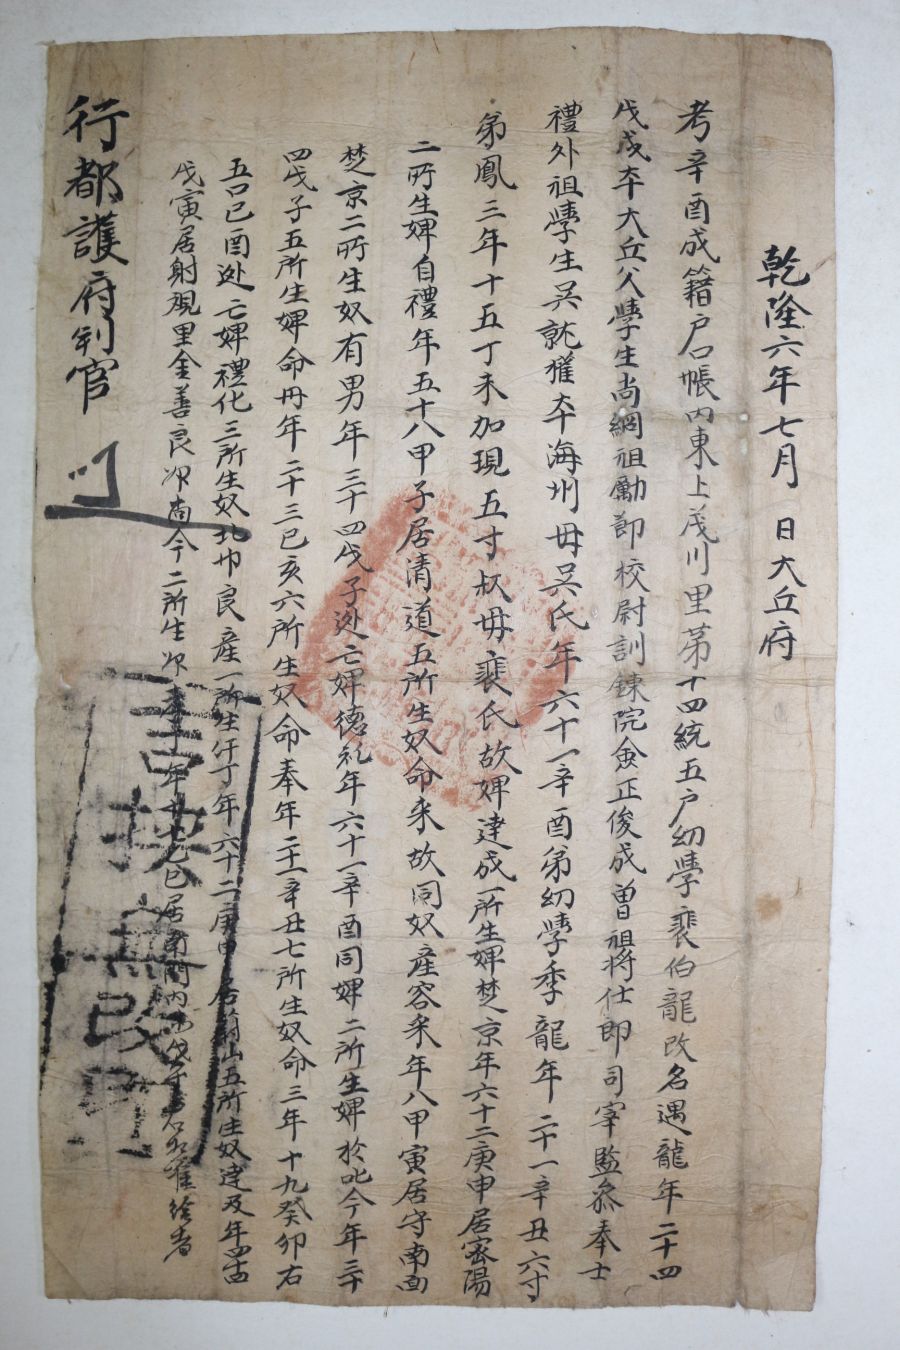 乾隆六年七月 日大丘府
考辛酉成籍戶口帳內東上茂川里苐十四統五戶幼學裴伯龍改名遇龍年二十四
戊戌夲大丘父學生尚綱祖勵節校尉訓鍊院僉正俊成曾祖將仕郎司宰監叅奉士
禮外祖學生吳就灌夲海州母吳氏年六十一辛酉弟幼學季龍年二十一辛丑六寸
弟鳳三年十五丁未加現五寸叔母裴氏故婢逹成一所生婢楚京年六十二庚申居密陽
二所生婢自禮年五十八甲子居清道五所生奴命釆故同奴産容釆年八甲寅居守南面
楚京二所生奴有男年三十四戊子逃亡婢德礼年六十一辛酉同婢二所生婢於叱今年三十
四戊子五所生婢命丹年二十三己亥六所生奴命奉年二十一辛丑七所生奴命三年十九癸卯右
五口己酉逃亡婢禮化三所生奴 良産一所生 丁年六十二庚申居 山五所生奴逹及年
戊寅居射 里金善良 二所生 年 居南門內
行都護府判官
周挾無改